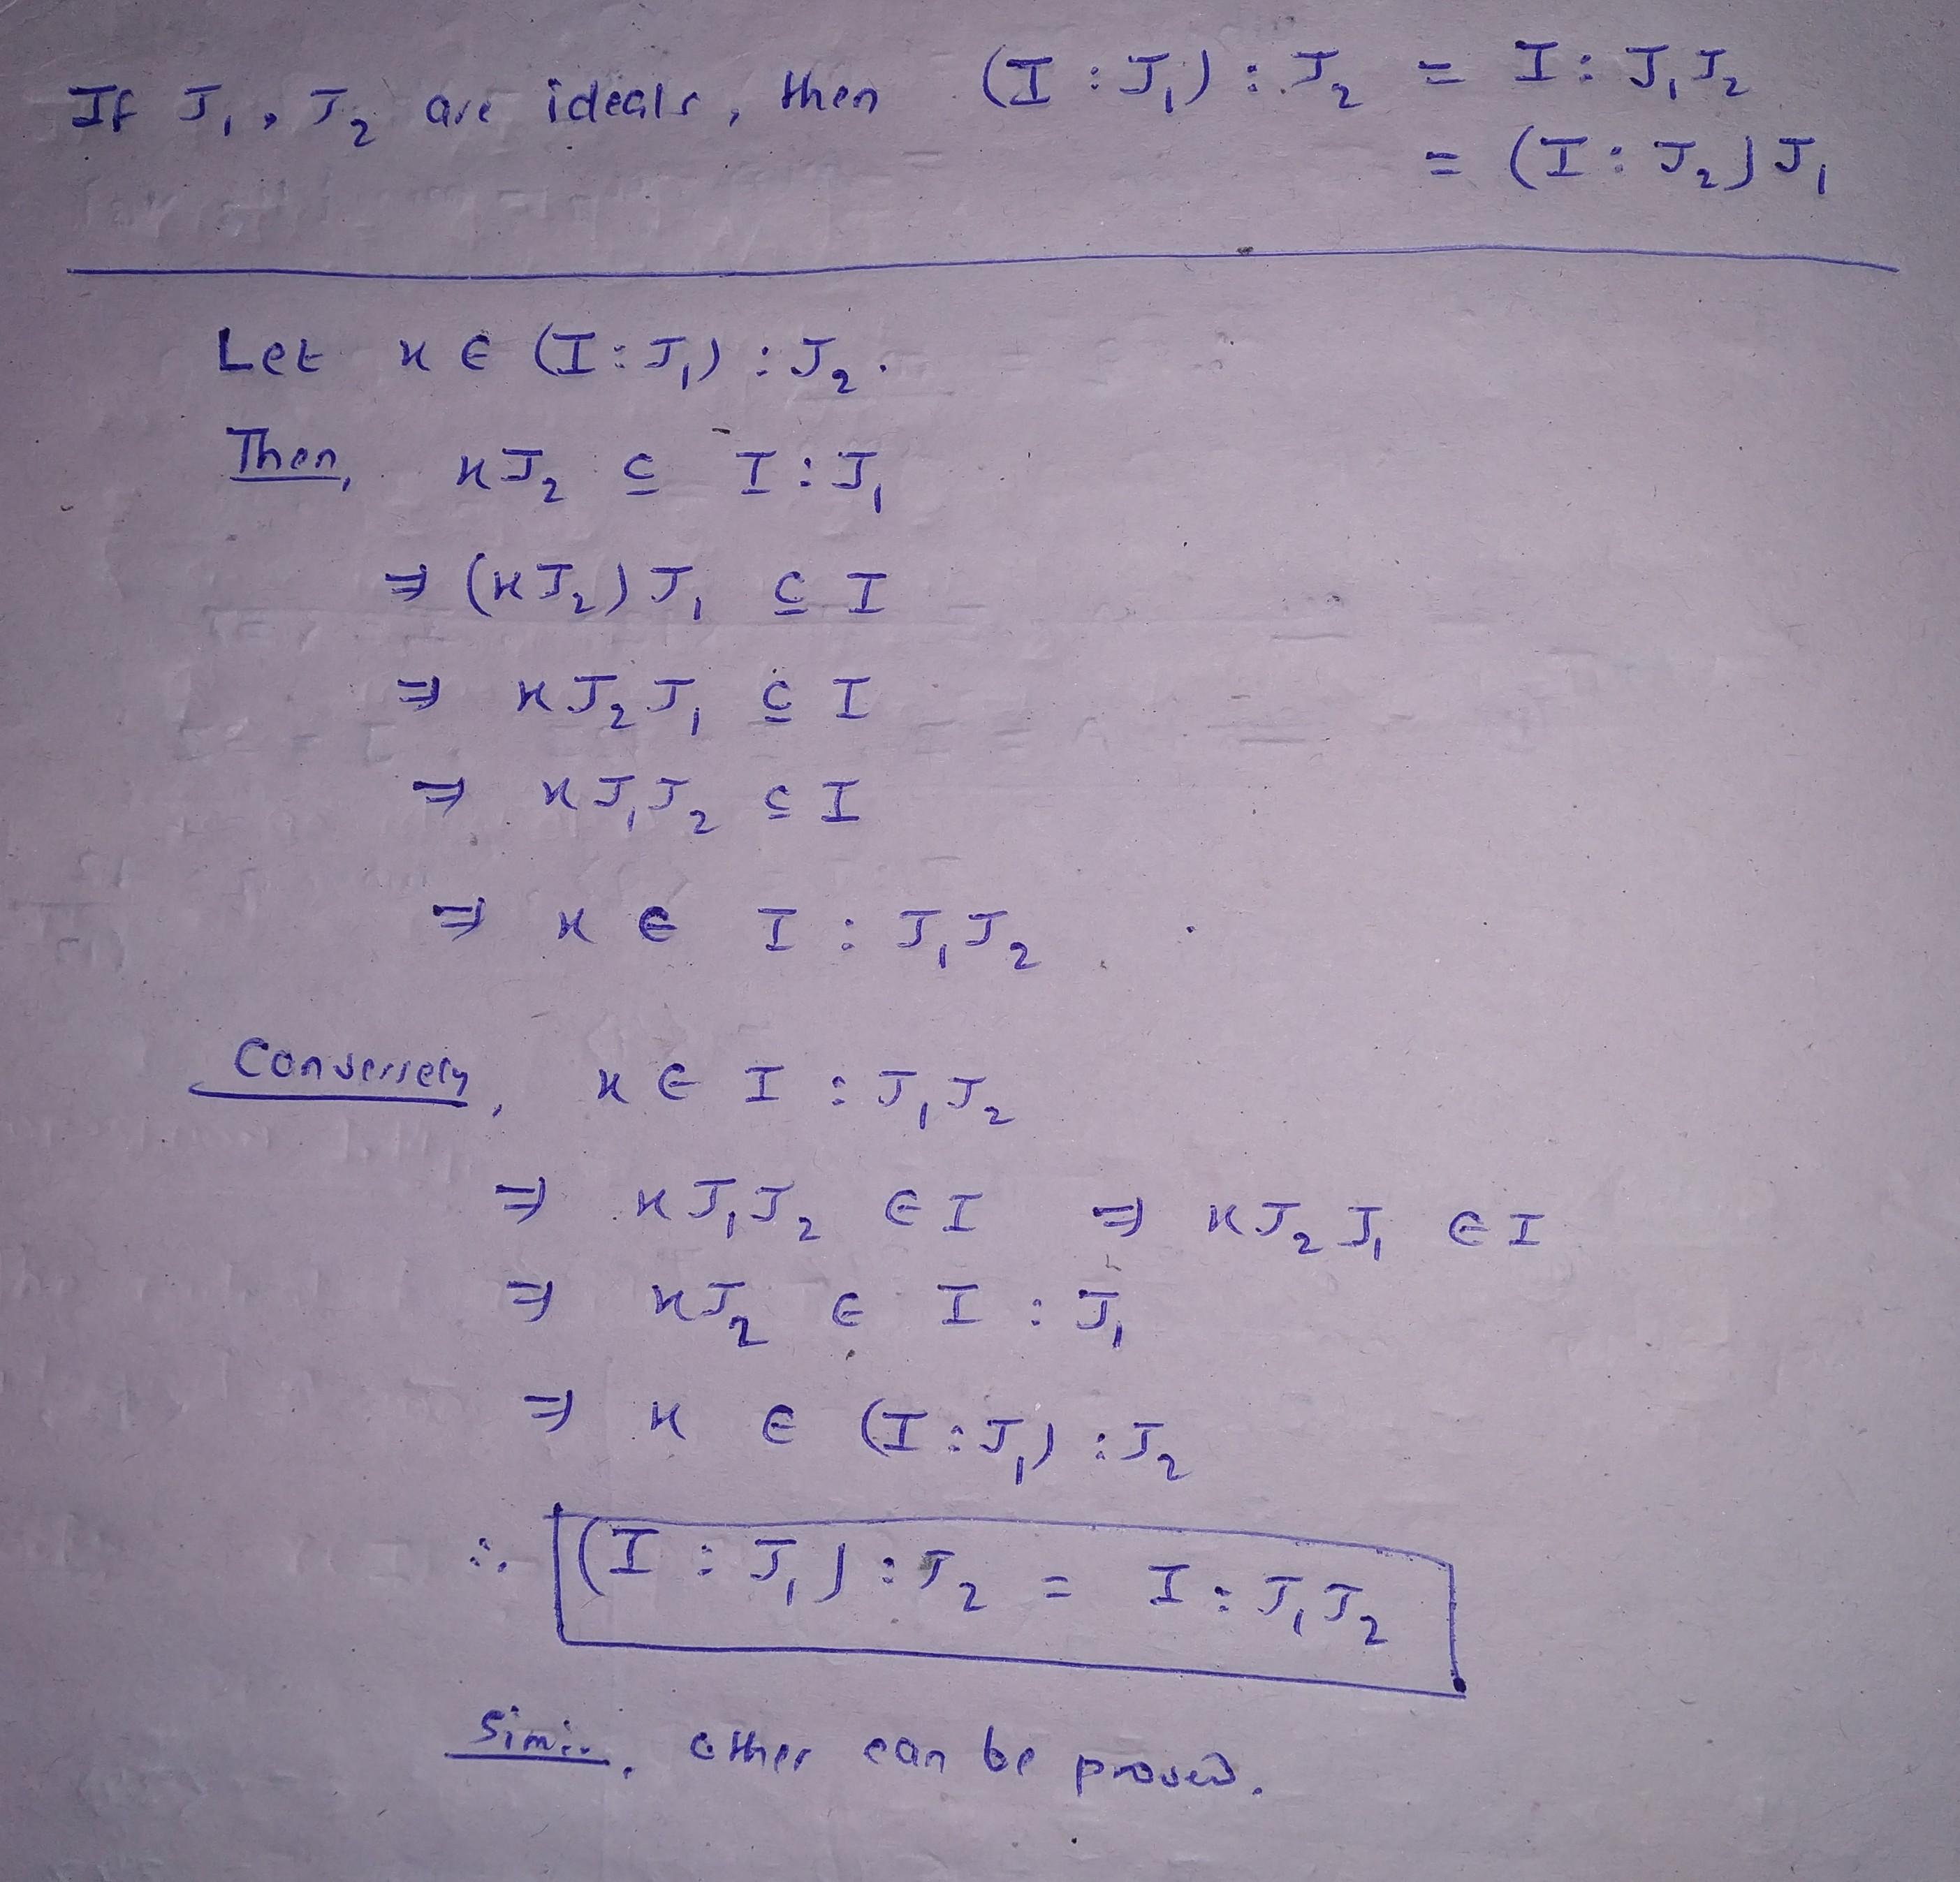 If J₁, J₂ are ideals, then (I : J₁) : J₂ = I : J₁J₂
= (I : J₂) J₁
Let x ∈ (I : J₁) : J₂.
Then, xJ₂ ⊆ I : J₁
⇒ (xJ₂) J₁ ⊆ I
⇒ xJ₂J₁ ⊆ I
⇒ xJ₁J₂ ⊆ I
⇒ x ∈ I : J₁J₂
Conversely, x ∈ I : J₁J₂
⇒ xJ₁J₂ ∈ I ⇒ xJ₂J₁ ∈ I
⇒ xJ₂ ∈ I : J₁
⇒ x ∈ (I : J₁) : J₂
∴ (I : J₁) : J₂ = I : J₁J₂
Simi.., other can be proved.